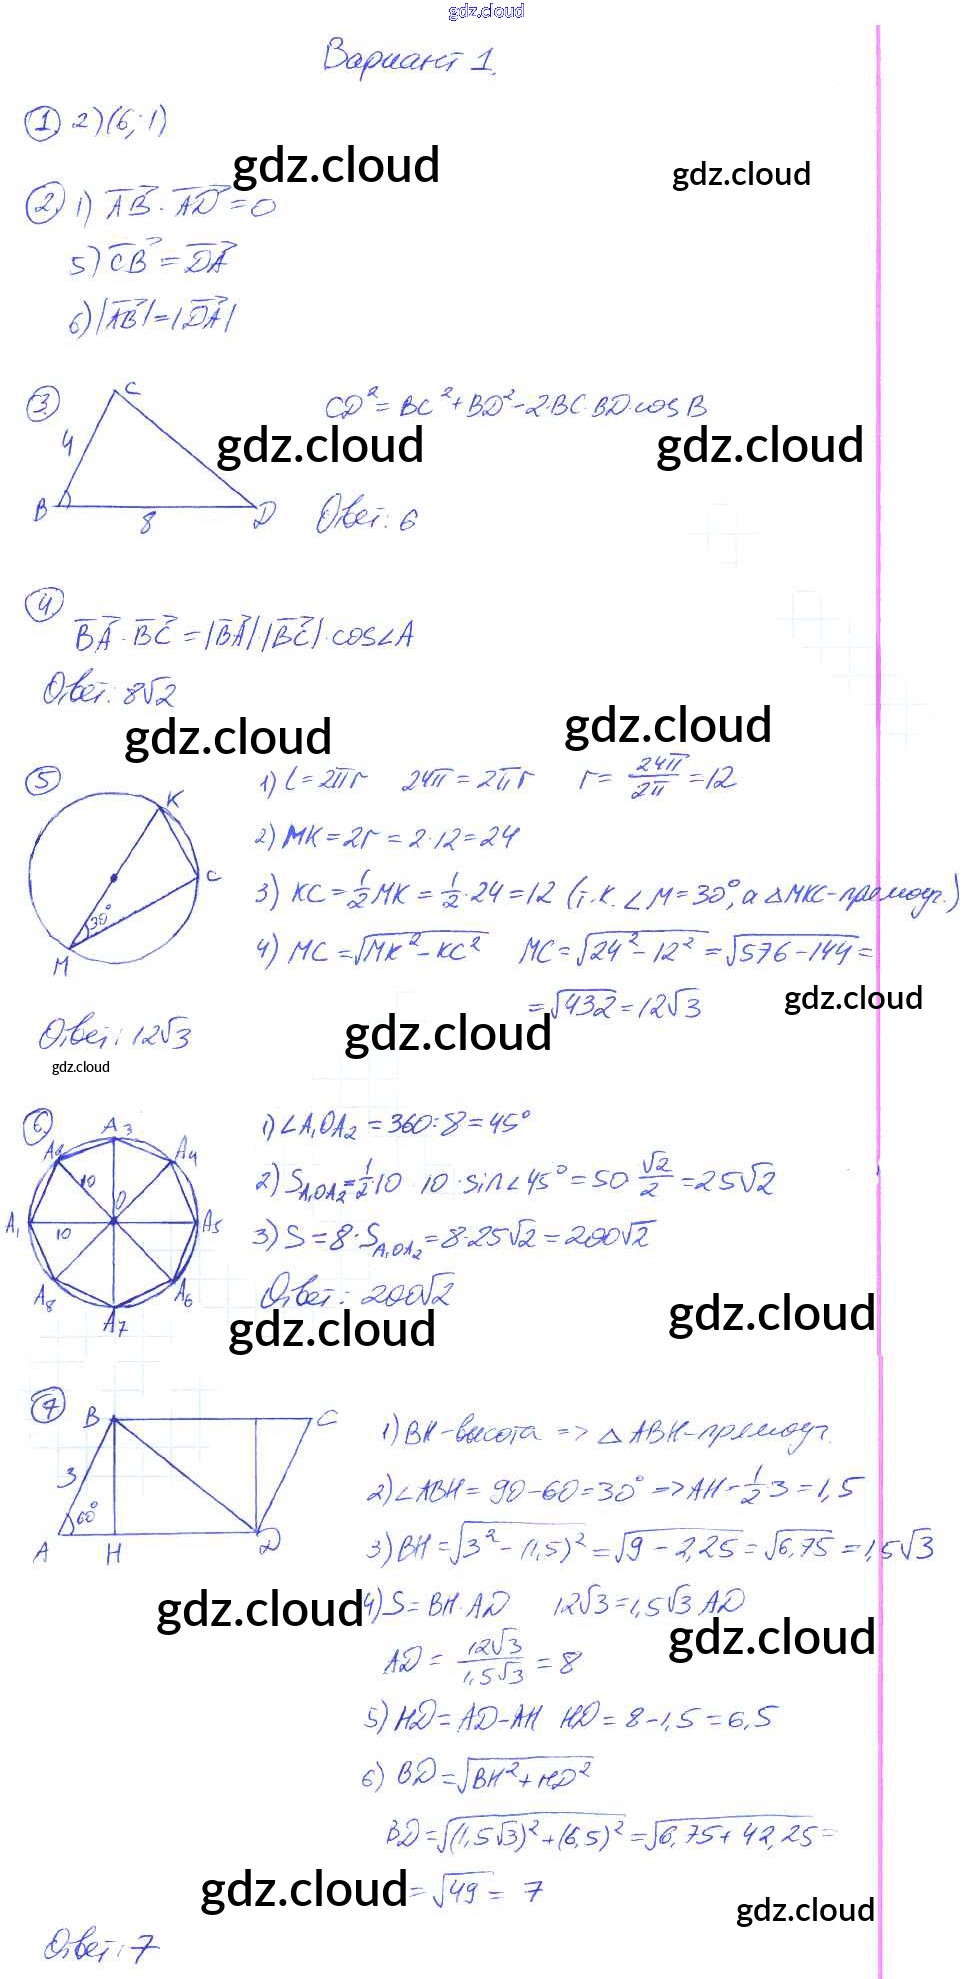 gdz.cloud
Вариант 1.
① 2) (6; 1)
gdz.cloud
gdz.cloud
② 1) AB⃗ · AD⃗ = 0
5) CB⃗ = DA⃗
6) |AB⃗| = |DA⃗|
③ C
4
B
8
D
CD² = BC² + BD² - 2·BC·BD·cosB
gdz.cloud
gdz.cloud
Ответ: 6
④
BA⃗ · BC⃗ = |BA⃗|·|BC⃗|·cos∠A
Ответ: 8√2
gdz.cloud
gdz.cloud
⑤ K
C
30°
M
1) C = 2πr 24π = 2πr r = 24π/2π = 12
2) MK = 2r = 2·12 = 24
3) KC = 1/2 MK = 1/2 · 24 = 12 (т.к. ∠M = 30°, а △MKC - прямоуг.)
4) MC = √(MK² - KC²) MC = √(24² - 12²) = √(576 - 144) =
= √432 = 12√3
gdz.cloud
gdz.cloud
Ответ: 12√3
gdz.cloud
⑥ A₃
A₂
A₄
10
O
A₁
10
A₅
A₈
A₆
A₇
1) ∠A₁OA₂ = 360:8 = 45°
2) S_A₁OA₂ = 1/2 10 · 10 · sin∠45° = 50 √2/2 = 25√2
3) S = 8·S_A₁OA₂ = 8·25√2 = 200√2
Ответ: 200√2
gdz.cloud
gdz.cloud
⑦ B
C
3
60°
A
H
D
1) BH - высота => △ABH - прямоуг.
2) ∠ABH = 90 - 60 = 30° => AH = 1/2·3 = 1,5
3) BH = √(3² - (1,5)²) = √(9 - 2,25) = √6,75 = 1,5√3
gdz.cloud
4) S = BH·AD 12√3 = 1,5√3 AD
gdz.cloud
AD = 12√3/1,5√3 = 8
5) HD = AD - AH HD = 8 - 1,5 = 6,5
6) BD = √(BH² + HD²)
BD = √((1,5√3)² + (6,5)²) = √(6,75 + 42,25) =
gdz.cloud
= √49 = 7
gdz.cloud
Ответ: 7